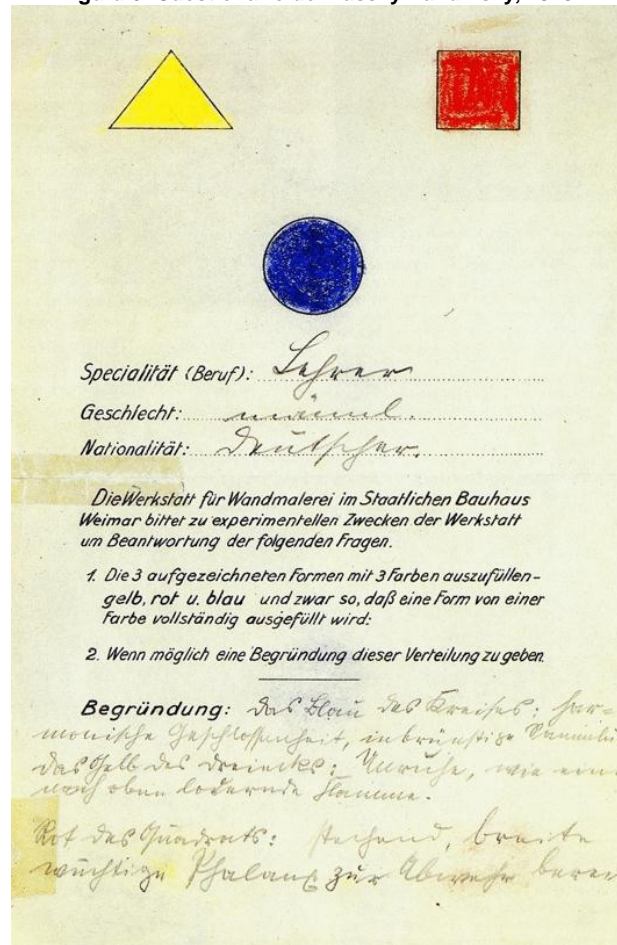 Specialität (Beruf): Lehrer
Geschlecht: männl.
Nationalität: Deutscher.
Die Werkstatt für Wandmalerei im Staatlichen Bauhaus
Weimar bittet zu experimentellen Zwecken der Werkstatt
um Beantwortung der folgenden Fragen.
1. Die 3 aufgezeichneten Formen mit 3 Farben auszufüllen-
gelb, rot u. blau und zwar so, daß eine Form von einer
Farbe vollständig ausgefüllt wird:
2. Wenn möglich eine Begründung dieser Verteilung zu geben.
Begründung: Das Blau des Kreises: har=
monische Geschlossenheit, inbrünstige
Das Gelb des Dreiecks: Unruhe, wie ein
nach oben lodernde Flamme.
Rot des Quadrats: stechend, breite
wuchtige Phalanx zur Abwehr berei